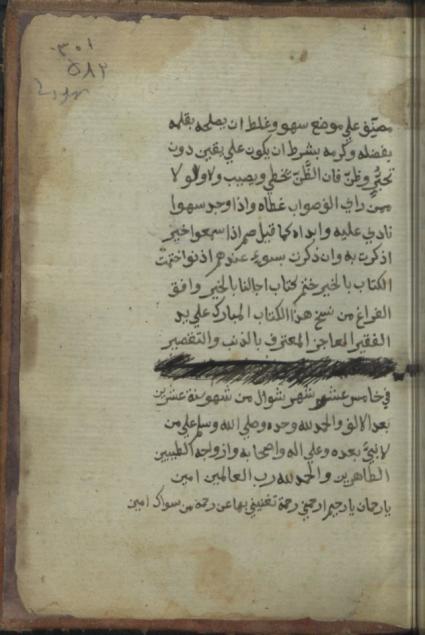 ٣٠١
٥٨٢
على موضع سهو وغلط ان يصلحه بقلمه
بفضله وكرمه بشرط ان يكون على يقين دون
وظن فان الظن يخطي ويصيب ولا ولو لا
ممن راي الوصواب غطاه واذا وجد سهوا
نادي عليه وابداه كما قيل صم اذا سمعوا خير
اذكرت به وان ذكرت بسوء عندهم اذنوا ختمت
الكتاب بالخير ختم لكتاب اجالنا بالخير وافق
الفراغ من نسخ هذا الكتاب المبارك على يد
الفقير العاجز المعترف بالذنب والتقصير
في خامس عشر شهر شوال من شهور سنة عشرين
بعد الالف والحمد لله وحده وصلى الله وسلم على من
لا نبي بعده وعلى اله واصحابه وازواجه الطيبين
الطاهرين والحمد لله رب العالمين امين
يا رحمان يا رحيم ارحمني رحمة تغنيني بها عن رحمة من سواك امين